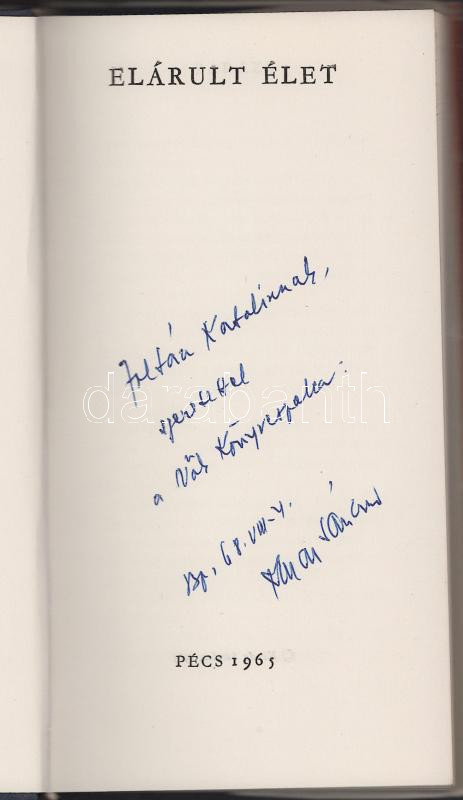 ELÁRULT ÉLET
Zoltán Katalinnak,
szeretettel
a Vas Könyvespolca:
Bp., 68. VIII-4.
darabanth
PÉCS 1965